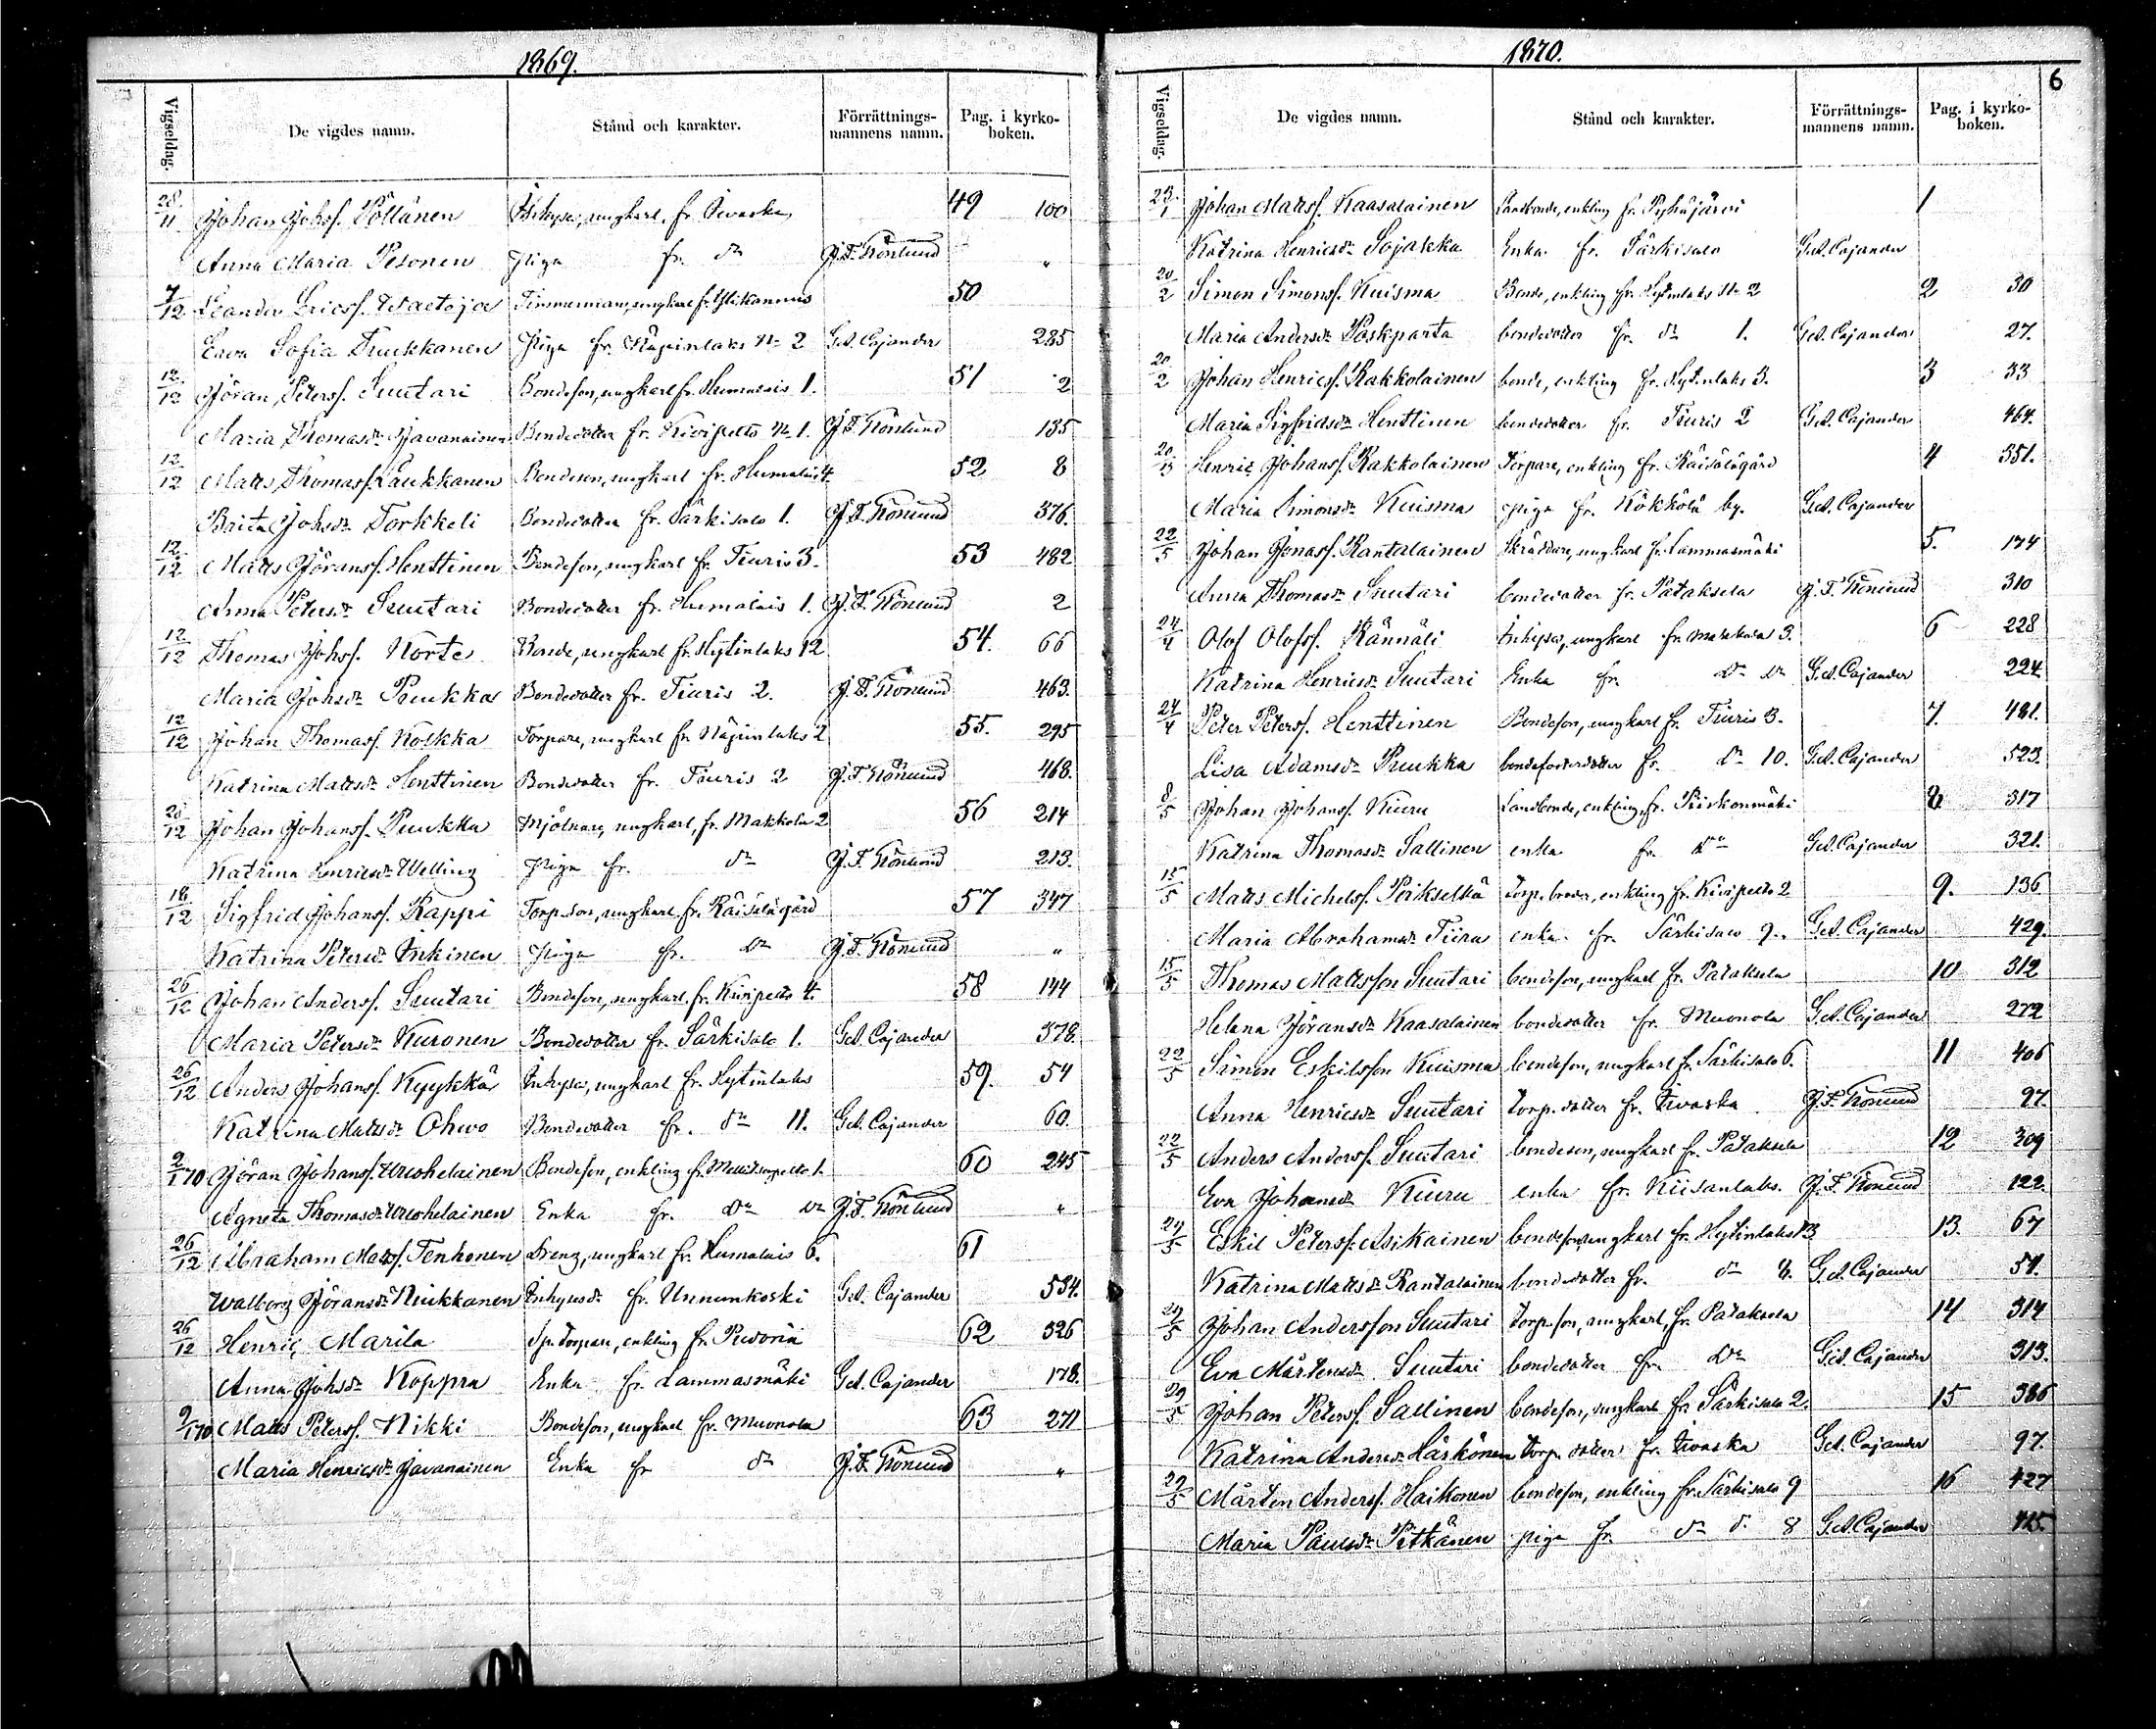 1869.
Vigseldag. De vigdes namn. Stånd och karakter. Förrättnings-mannens namn. Pag. i kyrko-boken.
28/11 Johan Johsf. Pöllänen Inhyses, ungkarl fr. Ivaska 49 100
Anna Maria Pesonen Piga fr. do J.F. Krönlund "
7/12 Leander Ericsf. Timmerman, ungkarl fr. Ylikannus 50
Eava Sofia Truukkanen Piga fr. Näpinlaks No 2 G.A. Cajander 285
12/12 Jöran Petersf. Suutari Bondeson, ungkarl fr. Humalais 1. 51 2
Maria Thomasdr Javanainen Bondedotter fr. Kivipelto No 1. J.F. Krönlund 135
12/12 Matts Thomasf. Laukkanen Bondeson, ungkarl fr. Humalais 4. 52 8
Brita Johsdr Torkkeli Bondedotter fr. Särkisalo 1. J.F. Krönlund 376.
12/12 Matts Jöransf. Henttinen Bondeson, ungkarl fr. Tiuris 3. 53 482
Anna Petersdr Suutari Bondedotter fr. Humalais 1. J.F. Krönlund 2
12/12 Thomas Johsf. Korte Bonde, ungkarl fr. Hytinlaks 12 54. 66
Maria Johsdr Puukka Bondedotter fr. Tiuris 2. J.F. Krönlund 463.
12/12 Johan Thomasf. Kolkka Torpare, ungkarl fr. Näpinlaks 2 55. 295
Katrina Mattsdr Henttinen Bondedotter fr. Tiuris 2 J.F. Krönlund 468.
28/12 Johan Johansf. Puukka Mjölnare, ungkarl, fr. Makkola 2 56 214
Katrina Henricsdr Welling Piga fr. do J.F. Krönlund 213.
18/12 Sigfrid Johansf. Rappi Torp.son, ungkarl, fr. Räisälägård 57 347
Katrina Petersdr Inkinen Piga fr. do J.F. Krönlund "
26/12 Johan Andersf. Suutari Bondeson, ungkarl, fr. Kivipelto 4. 58 144
Maria Petersdr Kuronen Bondedotter fr. Särkisalo 1. G.A. Cajander 378.
26/12 Anders Johansf. Kyykkä Inhyses, ungkarl fr. Hytinlaks 59. 54
Katrina Mattsdr Ohwo Bondedotter fr. do 11. G.A. Cajander 60.
2/1 70 Jöran Johansf. Wuohelainen Bondeson, enkling fr. 1. 60 245
Agneta Thomasdr Wuohelainen Enka fr. do do J.F. Krönlund "
26/12 Abraham Mattsf. Tenhonen Dreng, ungkarl fr. Humalais 6. 61
Walborg Jöransdr Niukkanen Inhysesdr fr. Unnunkoski G.A. Cajander 534.
26/12 Henric Marila Sp. torpare, enkling fr. Pudoria 62 326
Anna Johsdr Koppra Enka fr. Lammasmäki G.A. Cajander 178.
9/1 70 Matts Petersf. Nikki Bondeson, ungkarl fr. Muonola 63 271
Maria Henricsdr Javanainen Enka fr do J.F. Krönlund "
1870.
6
Vigseldag. De vigdes namn. Stånd och karakter. Förrättnings-mannens namn. Pag. i kyrko-boken.
23/1 Johan Mattsf. Kaasalainen Landbonde, enkling fr. Pyhäjärvi 1
Katrina Henricsdr Sojakka Enka fr. Särkisalo G.A. Cajander
20/2 Simon Simonsf. Kuisma Bonde, enkling fr. Hytinlaks No 2 2 30
Maria Andersdr Paskparta bondedotter fr. do 1. G.A. Cajander 27.
20/2 Johan Henricsf. Rakkolainen bonde, enkling fr. Hytinlaks 3. 3 33
Maria Sigfridsdr Henttinen bondedotter fr. Tiuris 2 G.A. Cajander 464.
20/3 Henric Johansf. Rakkolainen Torpare, enkling fr. Räisälägård 4 351.
Maria Simonsdr Kuisma piga fr. Kökkölä by. G.A. Cajander
22/5 Johan Jonasf. Rantalainen Skräddare, ungkarl fr. Lammasmäki 5. 174
Anna Thomasdr Suutari bondedotter fr. Pataksela J.F. Krönlund 310
24/4 Olof Olofsf. Rännäli Inhyses, ungkarl fr. Makkola 3. 6 228
Katrina Henricsdr Suutari Enka fr. do do G.A. Cajander 224
24/4 Peter Petersf. Henttinen Bondeson, ungkarl fr. Tiuris 3. 7. 481.
Lisa Adamsdr Puukka bondefosterdotter fr. do 10. G.A. Cajander 523.
8/5 Johan Johansf. Kiuru Landbonde, enkling fr. Piiskonmäki 8 317
Katrina Thomasdr Sallinen enka fr. do G.A. Cajander 321.
15/5 Matts Michelsf. Torp. broder, enkling fr. Kivipelto 2 9. 136
Maria Abrahamsdr Tiira enka fr. Särkisalo 9. G.A. Cajander 429.
15/5 Thomas Mattsson Suutari bondeson, ungkarl fr. Pataksela 10 312
Helena Jöransdr Kaasalainen bondedotter fr. Muonola G.A. Cajander 272
22/5 Simon Eskilsson Kuisma bondeson, ungkarl fr. Särkisalo 6. 11 406
Anna Henricsdr Suutari torp. dotter fr. Ivaska J.F. Krönlund 97.
22/5 Anders Andersf. Suutari bondeson, ungkarl fr. Pataksela 12 309
Eva Johansdr Kiuru enka fr. Kiisanlaks. J.F. Krönlund 122.
29/5 Eskil Petersf. Asikainen bondeson, ungkarl fr. Hytinlaks 13 13. 67
Katrina Mattsdr Rantalainen bondedotter fr. do 8. G.A. Cajander 51.
29/5 Johan Andersson Suutari torp.son, ungkarl, fr. Pataksela 14 314
Eva Mårtensdr Suutari bondedotter fr. do G.A. Cajander 313.
29/5 Johan Petersf. Sallinen bondeson, ungkarl fr. Särkisalo 2. 15 386
Katrina Andersdr Härkönen torp. dotter fr. Ivaska G.A. Cajander 97.
29/5 Mårten Andersf. Haikonen bondeson, enkling fr. Särkisalo 9 16 427
Maria Paulsdr Pitkänen piga fr. do d. 8 G.A. Cajander 425.